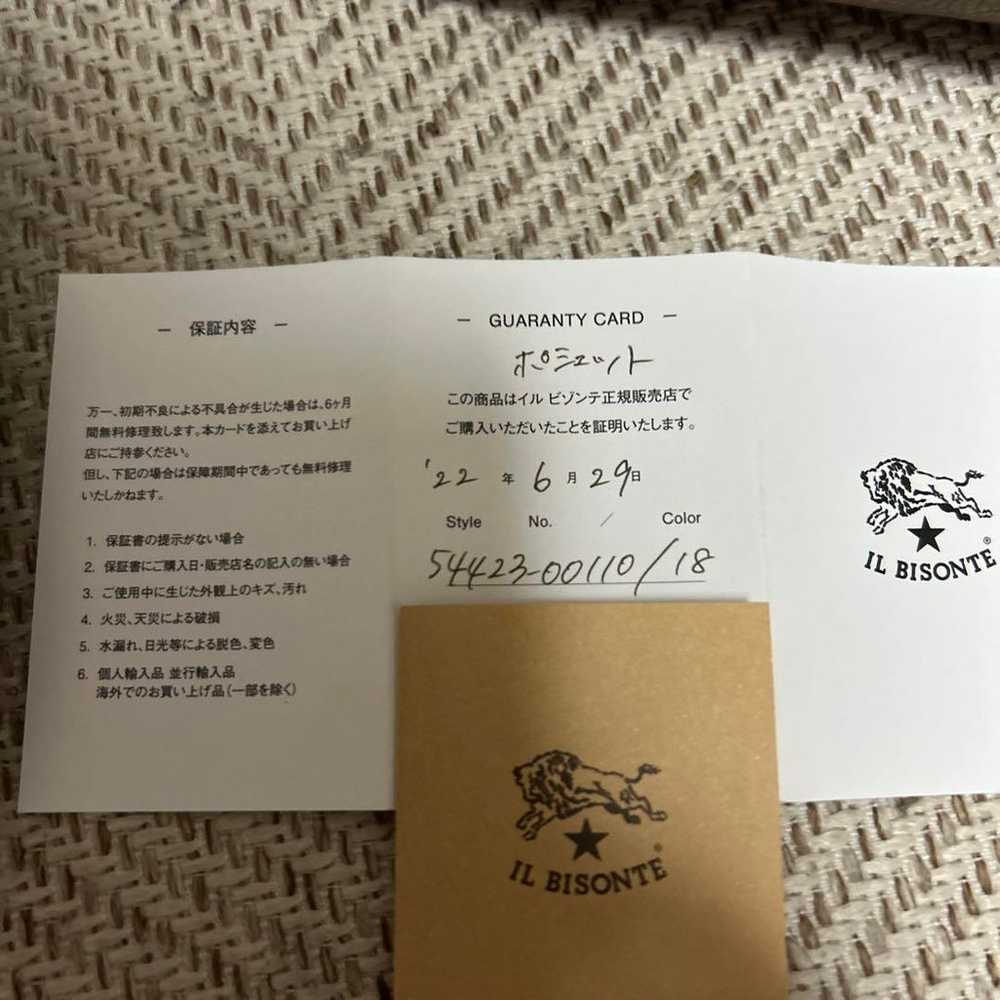 — 保証内容 —
万一、初期不良による不具合が生じた場合は、6ヶ月
間無料修理致します。本カードを添えてお買い上げ
店にご持参ください。
但し、下記の場合は保障期間中であっても無料修理
いたしかねます。
1. 保証書の提示がない場合
2. 保証書にご購入日・販売店名の記入の無い場合
3. ご使用中に生じた外観上のキズ、汚れ
4. 火災、天災による破損
5. 水漏れ、日光等による脱色、変色
6. 個人輸入品 並行輸入品
海外でのお買い上げ品(一部を除く)
— GUARANTY CARD —
ポシェット
この商品はイル ビゾンテ正規販売店で
ご購入いただいたことを証明いたします。
'22 年 6 月 29 日
Style No. / Color
54423-00110/18
IL BISONTE®
IL BISONTE®